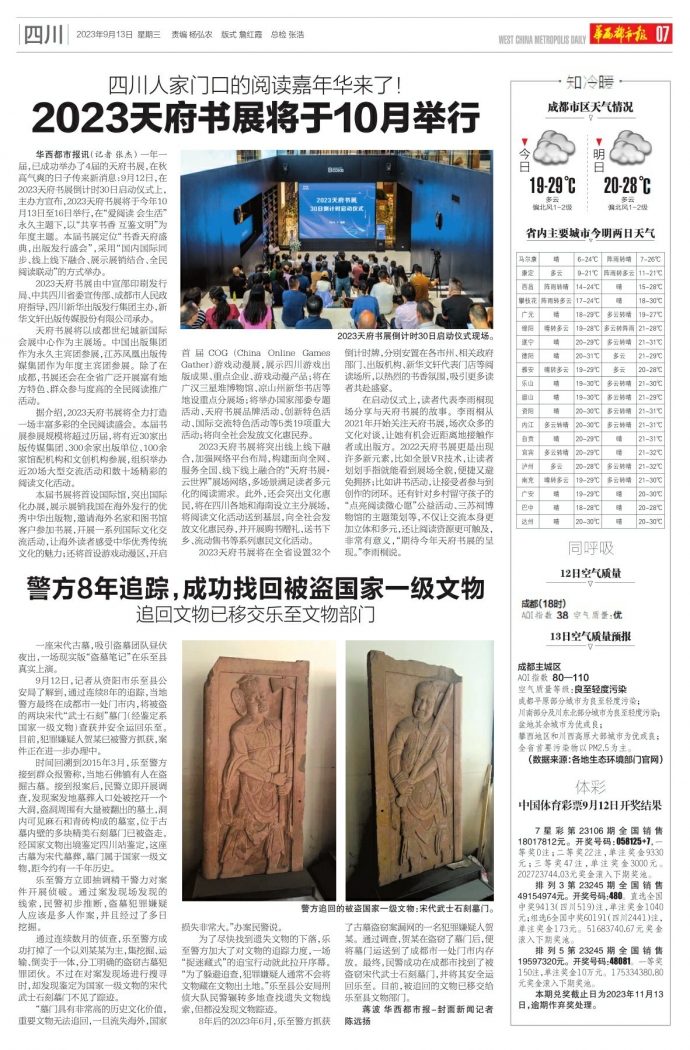 四川
2023年9月13日 星期三 责编 杨弘农 版式 詹红霞 总检 张浩
WEST CHINA METROPOLIS DAILY
华西都市报
07
四川人家门口的阅读嘉年华来了!
2023天府书展将于10月举行
华西都市报讯(记者 张杰)一年一
届,已成功举办了4届的天府书展,在秋
高气爽的日子传来新消息:9月12日,在
2023天府书展倒计时30日启动仪式上,
主办方宣布,2023天府书展将于今年10
月13日至16日举行,在“爱阅读 会生活”
永久主题下,以“共享书香 互鉴文明”为
年度主题。本届书展定位“书香天府盛
典,出版发行盛会”,采用“国内国际同
步、线上线下融合、展示展销结合、全民
阅读联动”的方式举办。
2023天府书展由中宣部印刷发行
局、中共四川省委宣传部、成都市人民政
府指导,四川新华出版发行集团主办,新
华文轩出版传媒股份有限公司承办。
天府书展将以成都世纪城新国际
会展中心作为主展场。中国出版集团
作为永久主宾团参展,江苏凤凰出版传
媒集团作为年度主宾团参展。除了在
成都,书展还会在全省广泛开展富有地
方特色、群众参与度高的全民阅读推广
活动。
据介绍,2023天府书展将全力打造
一场丰富多彩的全民阅读盛会。本届书
展参展规模将超过历届,将有近30家出
版传媒集团,300余家出版单位,100余
家馆配机构和文创机构参展,组织举办
近20场大型交流活动和数十场精彩的
阅读文化活动。
本届书展将首设国际馆,突出国际
化办展,展示展销我国在海外发行的优
秀中华出版物,邀请海外名家和图书馆
客户参加书展,开展一系列国际文化交
流活动,让海外读者感受中华优秀传统
文化的魅力;还将首设游戏动漫区,开启
2023天府书展
30日倒计时启动仪式
2023天府书展倒计时30日启动仪式现场。
首届COG(China Online Games
Gather)游戏动漫展,展示四川游戏出
版成果、重点企业、游戏动漫产品;将在
广汉三星堆博物馆、凉山州新华书店等
地设重点分展场;将举办国家部委专题
活动、天府书展品牌活动、创新特色活
动、国际交流特色活动等5类19项重大
活动;将向全社会发放文化惠民券。
2023天府书展将突出线上线下融
合,加强网络平台布局,构建面向全网、
服务全国、线下线上融合的“天府书展·
云世界”展场网络,多场景满足读者多元
化的阅读需求。此外,还会突出文化惠
民,将在四川各地和海南设立主分展场,
将阅读文化活动送到基层,向全社会发
放文化惠民券,并开展购书赠礼、送书下
乡、流动售书等系列惠民文化活动。
2023天府书展将在全省设置32个
倒计时牌,分别安置在各市州、相关政府
部门、出版机构、新华文轩代表门店等阅
读场所,以热烈的书香氛围,吸引更多读
者共赴盛宴。
在启动仪式上,读者代表李雨桐现
场分享与天府书展的故事。李雨桐从
2021年开始关注天府书展,场次众多的
文化对谈,让她有机会近距离地接触作
者或出版方。2022天府书展更是出现
许多新元素,比如全景VR技术,让读者
划划手指就能看到展场全貌,便捷又避
免拥挤;比如讲书活动,让接受者参与到
创作的闭环。还有针对乡村留守孩子的
“点亮阅读微心愿”公益活动、三苏祠博
物馆的主题策划等,不仅让交流本身更
加立体和多元,还让阅读资源更可触及,
非常有意义,“期待今年天府书展的呈
现。”李雨桐说。
警方8年追踪,成功找回被盗国家一级文物
追回文物已移交乐至文物部门
一座宋代古墓,吸引盗墓团队昼伏
夜出,一场现实版“盗墓笔记”在乐至县
真实上演。
9月12日,记者从资阳市乐至县公
安局了解到,通过连续8年的追踪,当地
警方最终在成都市一处门市内,将被盗
的两块宋代“武士石刻”墓门(经鉴定系
国家一级文物)查获并安全运回乐至。
目前,犯罪嫌疑人贺某已被警方抓获,案
件正在进一步办理中。
时间回溯到2015年3月,乐至警方
接到群众报警称,当地石佛镇有人在盗
掘古墓。接到报案后,民警立即开展调
查,发现案发地墓葬入口处被挖开一个
大洞,盗洞周围有大量被翻出的墓土,洞
内可见麻石和青砖构成的墓室,位于古
墓内壁的多块精美石刻墓门已被盗走。
经国家文物出境鉴定四川站鉴定,这座
古墓为宋代墓葬,墓门属于国家一级文
物,距今约有一千年历史。
乐至警方立即抽调精干警力对案
件开展侦破。通过案发现场发现的
线索,民警初步推断,盗墓犯罪嫌疑
人应该是多人作案,并且经过了多日
挖掘。
通过连续数月的侦查,乐至警方成
功打掉了一个以刘某某为主,集挖掘、运
输、倒卖于一体,分工明确的盗窃古墓犯
罪团伙。不过在对案发现场进行搜寻
时,却发现鉴定为国家一级文物的宋代
武士石刻墓门不见了踪迹。
“墓门具有非常高的历史文化价值,
重要文物无法追回,一旦流失海外,国家
警方追回的被盗国家一级文物:宋代武士石刻墓门。
损失非常大。”办案民警说。
为了尽快找到遗失文物的下落,乐
至警方加大了对文物的追踪力度,一场
“捉迷藏式”的追宝行动就此拉开序幕。
“为了躲避追查,犯罪嫌疑人通常不会将
文物藏在文物出土地。”乐至县公安局刑
侦大队民警辗转多地查找遗失文物线
索,但都没发现文物踪迹。
8年后的2023年6月,乐至警方抓获
了古墓盗窃案漏网的一名犯罪嫌疑人贺
某。通过调查,贺某在盗窃了墓门后,便
将墓门运送到了成都市一处门市内存
放。最终,民警成功在成都市找到了被
盗窃宋代武士石刻墓门,并将其安全运
回乐至。目前,被追回的文物已移交给乐
至县文物部门。
蒋波 华西都市报-封面新闻记者
陈远扬
知冷暖
成都市区天气情况
今日
19-29℃
多云
偏北风1-2级
明日
20-28℃
多云
偏北风1-2级
省内主要城市今明两日天气
马尔康 晴 6-24℃ 阵雨转晴 7-26℃
康定 多云 9-21℃ 阵雨转多云 11-21℃
西昌 阵雨转晴 14-24℃ 晴 15-28℃
攀枝花 阵雨转多云 17-24℃ 晴 18-30℃
广元 晴 18-29℃ 多云转晴 19-27℃
绵阳 晴转多云 19-28℃ 多云转阵雨 21-28℃
遂宁 晴 20-29℃ 多云转晴 21-31℃
德阳 晴 20-31℃ 多云 21-29℃
雅安 晴转多云 19-29℃ 多云 20-28℃
乐山 晴 19-30℃ 多云转晴 21-30℃
眉山 晴 19-30℃ 多云转晴 21-29℃
资阳 晴 20-30℃ 多云转晴 21-31℃
内江 多云转晴 20-30℃ 多云转晴 21-31℃
自贡 晴 20-29℃ 晴 21-31℃
宜宾 多云转晴 20-29℃ 晴 21-32℃
泸州 多云 20-28℃ 多云转晴 21-32℃
南充 晴转多云 19-29℃ 多云转晴 21-30℃
广安 晴 19-29℃ 晴 20-30℃
巴中 晴 18-28℃ 晴 20-28℃
达州 晴 20-30℃ 晴 20-30℃
同呼吸
12日空气质量
成都(18时)
AQI指数 38 空气质量:优
13日空气质量预报
成都主城区
AQI指数 80—110
空气质量等级:良至轻度污染
成都平原部分城市为良至轻度污染;
川南部分及川东北部分城市为良至轻度污染;
盆地其余城市为优或良;
攀西地区和川西高原大部城市为优或良;
全省首要污染物以PM2.5为主。
(数据来源:各地生态环境部门官网)
体彩
中国体育彩票9月12日开奖结果
7星彩第23106期全国销售
18017812元。开奖号码:058125+7,一
等奖0注;二等奖22注,单注奖金9330
元;三等奖47注,单注奖金3000元。
202723744.03元奖金滚入下期奖池。
排列3第23245期全国销售
49154974元。开奖号码:480。直选全国
中奖9413(四川519)注,单注奖金1040
元;组选6全国中奖60191(四川2441)注,
单注奖金173元。51683740.67元奖金
滚入下期奖池。
排列5第23245期全国销售
19597320元。开奖号码:48081。一等奖
150注,单注奖金10万元。175334380.80
元奖金滚入下期奖池。
本期兑奖截止日为2023年11月13
日,逾期作弃奖处理。